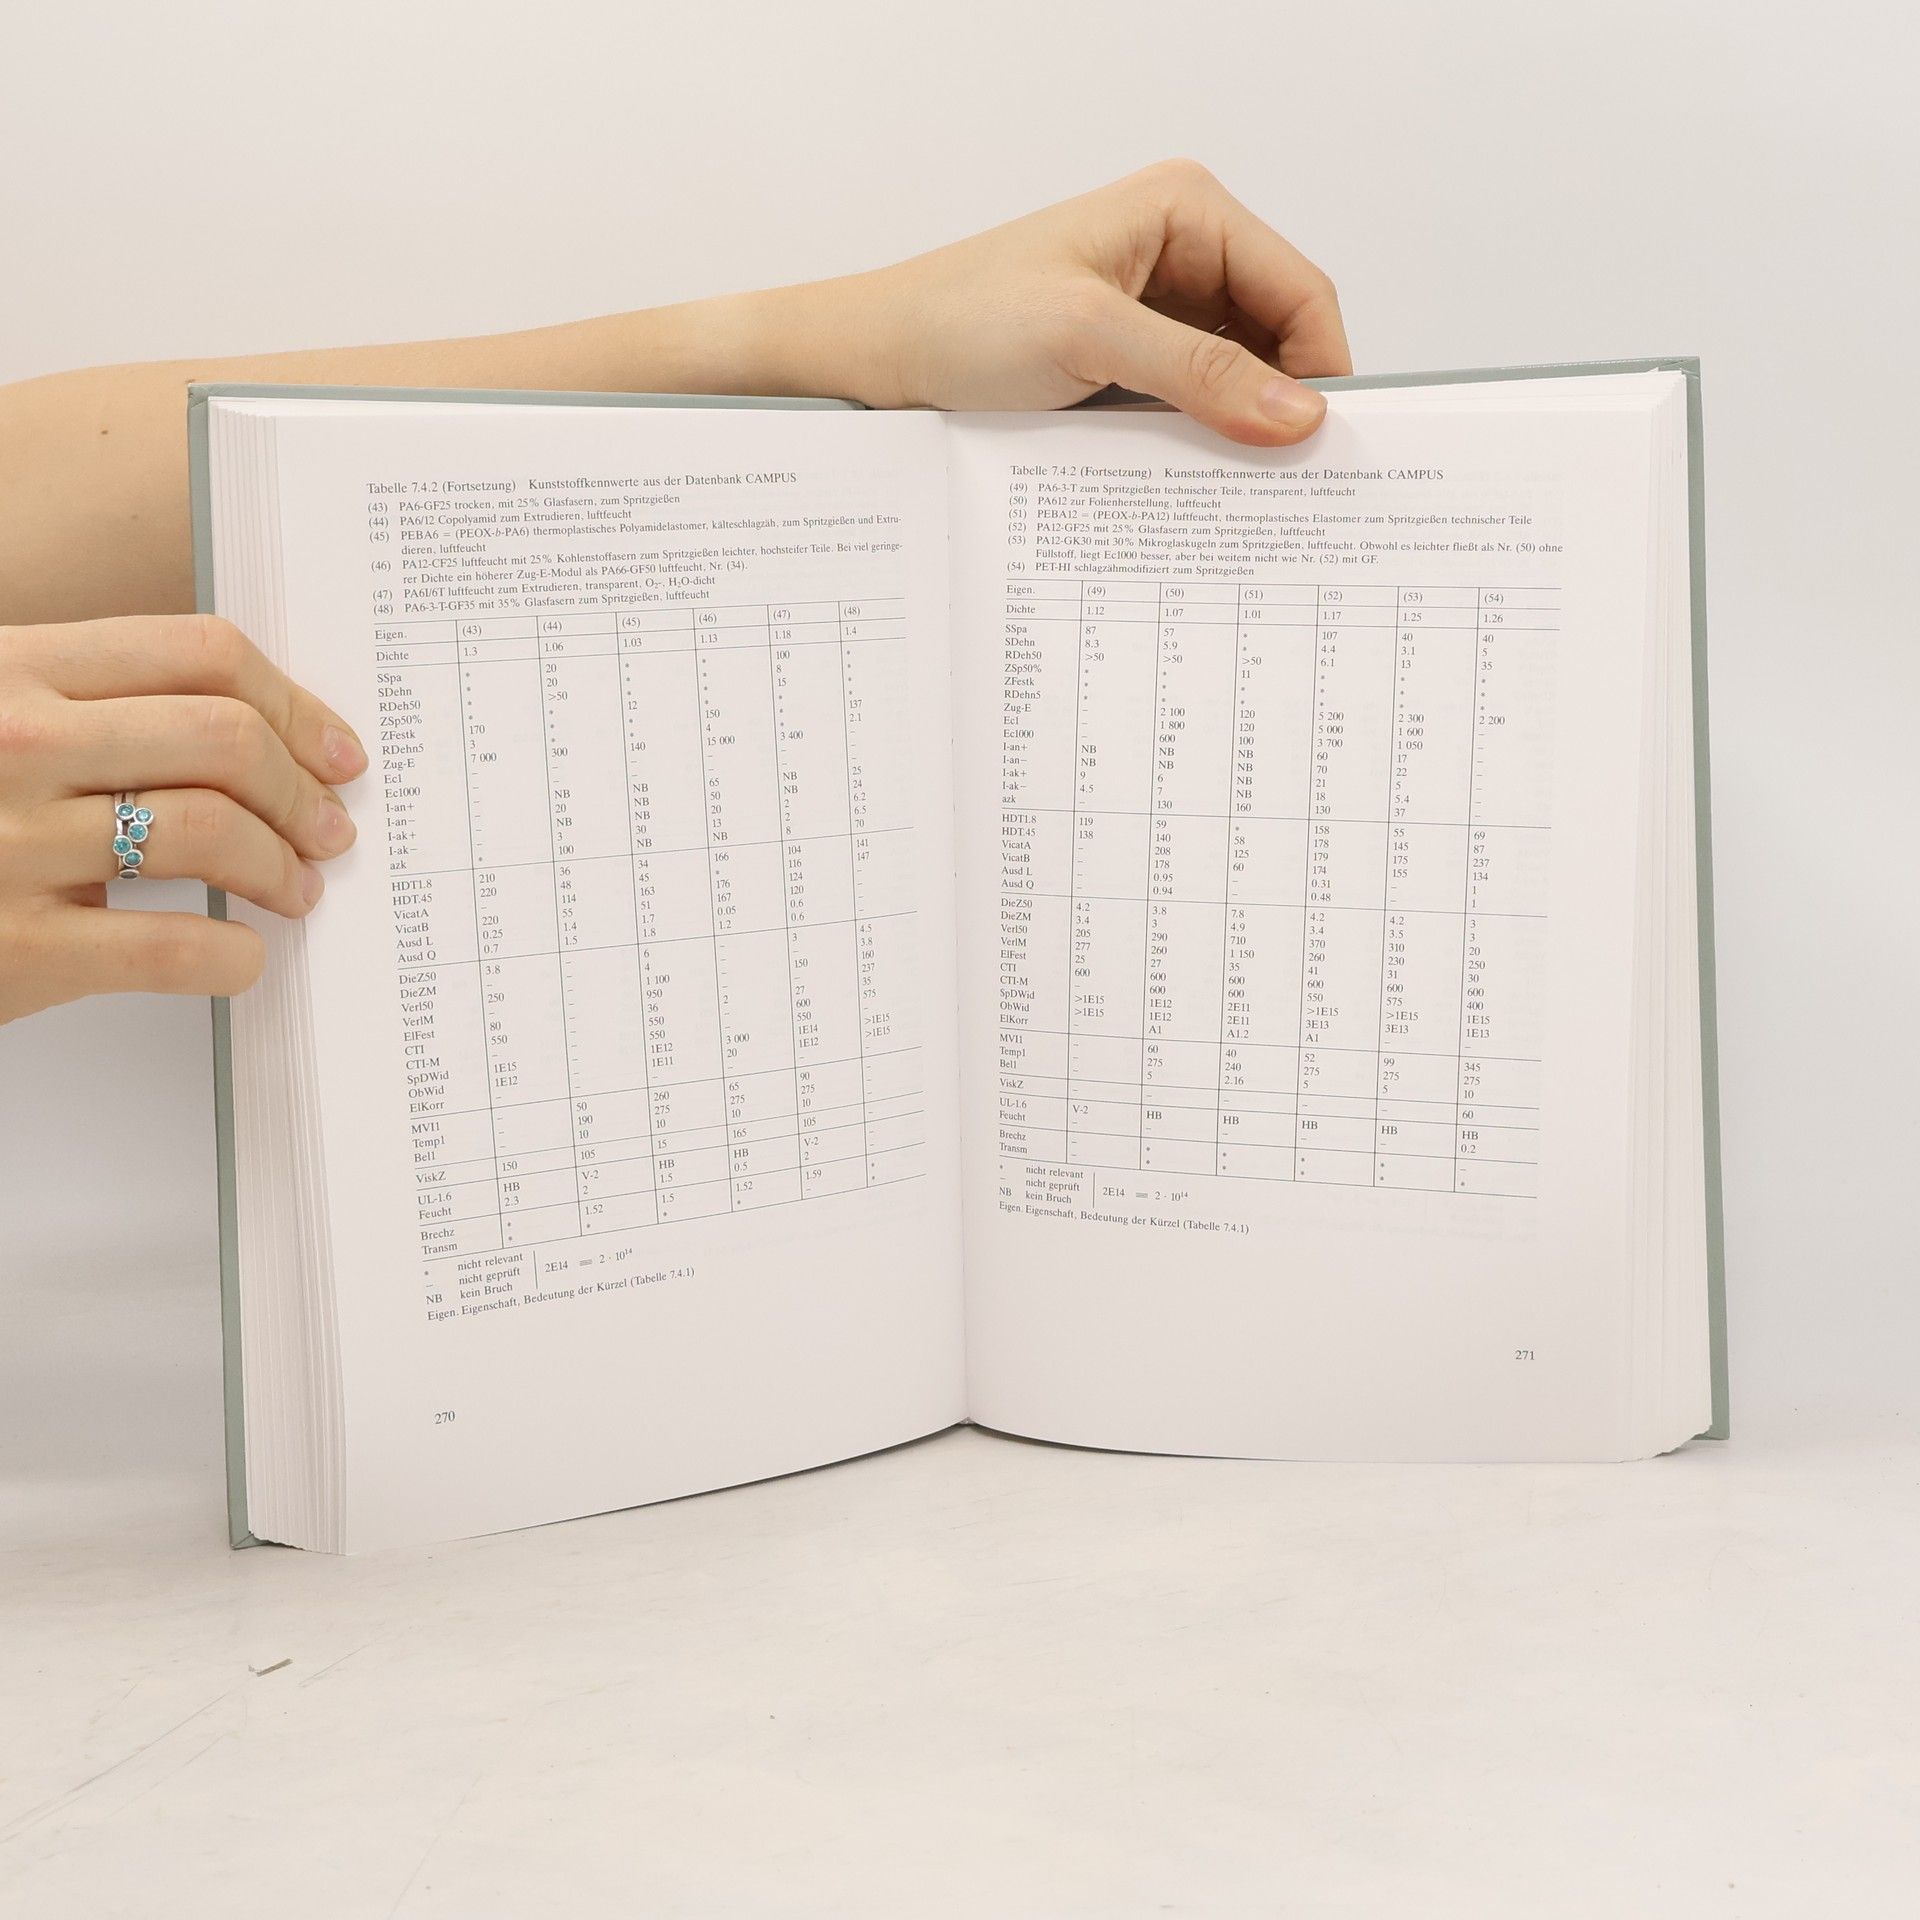 Tabelle 7.4.2 (Fortsetzung) Kunststoffkennwerte aus der Datenbank CAMPUS
(43) PA6-GF25 trocken, mit 25% Glasfasern, zum Spritzgießen
(44) PA6/12 Copolyamid zum Extrudieren, luftfeucht
(45) PEBA6 = (PEOX-b-PA6) thermoplastisches Polyamidelastomer, kälteschlagzäh, zum Spritzgießen und Extru-
dieren, luftfeucht
(46) PA12-CF25 luftfeucht mit 25% Kohlenstoffasern zum Spritzgießen leichter, hochsteifer Teile. Bei viel geringe-
rer Dichte ein höherer Zug-E-Modul als PA66-GF50 luftfeucht, Nr. (34).
(47) PA6I/6T luftfeucht zum Extrudieren, transparent, O₂-, H₂O-dicht
(48) PA6-3-T-GF35 mit 35% Glasfasern zum Spritzgießen, luftfeucht
Eigen. (43) (44) (45) (46) (47) (48)
Dichte 1.3 1.06 1.03 1.13 1.18 1.4
SSpa * 20 * * 100 *
SDehn * 20 * * 8 *
RDeh50 * >50 * * 15 *
ZSp50% * * 12 * * *
ZFestk 170 * * 150 * 137
RDehn5 3 * * 4 * 2.1
Zug-E 7 000 300 140 15 000 3 400 –
Ec1 – – – – – –
Ec1000 – – – – – –
I-an+ – NB NB 65 NB 25
I-an− – 20 NB 50 NB 24
I-ak+ – NB NB 20 2 6.2
I-ak− – 3 30 13 2 6.5
azk * 100 NB NB 8 70
HDT1.8 210 36 34 166 104 141
HDT.45 220 48 45 * 116 147
VicatA – 114 163 176 124 –
VicatB 220 55 51 167 120 –
Ausd L 0.25 1.4 1.7 0.05 0.6 –
Ausd Q 0.7 1.5 1.8 1.2 0.6 –
DieZ50 3.8 – 6 – 3 4.5
DieZM – – 4 – – 3.8
Verl50 250 – 1 100 – 150 160
VerlM – – 950 – – 237
ElFest 80 – 36 2 27 35
CTI 550 – 550 – 600 575
CTI-M – – 550 – 550 –
SpDWid 1E15 – 1E12 3 000 1E14 >1E15
ObWid 1E12 – 1E11 20 1E12 >1E15
ElKorr – – – – – –
MVI1 – 50 260 65 90 –
Temp1 – 190 275 275 275 –
Bel1 – 10 10 10 10 –
ViskZ 150 105 15 165 105 –
UL-1.6 HB V-2 HB HB V-2 –
Feucht 2.3 2 1.5 0.5 2 –
Brechz * 1.52 1.5 1.52 1.59 *
Transm * * * * – *
* nicht relevant
– nicht geprüft 2E14 = 2 · 10¹⁴
NB kein Bruch
Eigen. Eigenschaft, Bedeutung der Kürzel (Tabelle 7.4.1)
270
Tabelle 7.4.2 (Fortsetzung) Kunststoffkennwerte aus der Datenbank CAMPUS
(49) PA6-3-T zum Spritzgießen technischer Teile, transparent, luftfeucht
(50) PA612 zur Folienherstellung, luftfeucht
(51) PEBA12 = (PEOX-b-PA12) luftfeucht, thermoplastisches Elastomer zum Spritzgießen technischer Teile
(52) PA12-GF25 mit 25% Glasfasern zum Spritzgießen, luftfeucht
(53) PA12-GK30 mit 30% Mikroglaskugeln zum Spritzgießen, luftfeucht. Obwohl es leichter fließt als Nr. (50) ohne
Füllstoff, liegt Ec1000 besser, aber bei weitem nicht wie Nr. (52) mit GF.
(54) PET-HI schlagzähmodifiziert zum Spritzgießen
Eigen. (49) (50) (51) (52) (53) (54)
Dichte 1.12 1.07 1.01 1.17 1.25 1.26
SSpa 87 57 * 107 40 40
SDehn 8.3 5.9 * 4.4 3.1 5
RDeh50 >50 >50 >50 6.1 13 35
ZSp50% * * 11 * * *
ZFestk * * * * * *
RDehn5 * * * * * *
Zug-E – 2 100 120 5 200 2 300 2 200
Ec1 – 1 800 120 5 000 1 600 –
Ec1000 – 600 100 3 700 1 050 –
I-an+ NB NB NB 60 17 –
I-an− NB NB NB 70 22 –
I-ak+ 9 6 NB 21 5 –
I-ak− 4.5 7 NB 18 5.4 –
azk – 130 160 130 37 –
HDT1.8 119 59 * 158 55 69
HDT.45 138 140 58 178 145 87
VicatA – 208 125 179 175 237
VicatB – 178 60 174 155 134
Ausd L – 0.95 – 0.31 – 1
Ausd Q – 0.94 – 0.48 – 1
DieZ50 4.2 3.8 7.8 4.2 4.2 3
DieZM 3.4 3 4.9 3.4 3.5 3
Verl50 205 290 710 370 310 20
VerlM 277 260 1 150 260 230 250
ElFest 25 27 35 41 31 30
CTI 600 600 600 600 600 600
CTI-M – 600 600 550 575 400
SpDWid >1E15 1E12 2E11 >1E15 >1E15 1E15
ObWid >1E15 1E12 2E11 3E13 3E13 1E13
ElKorr – A1 A1.2 A1 – –
MVI1 – 60 40 52 99 345
Temp1 – 275 240 275 275 275
Bel1 – 5 2.16 5 5 10
ViskZ – – – – – 60
UL-1.6 V-2 HB HB HB HB HB
Feucht – – – – – 0.2
Brechz – * * * * –
Transm – * * * * *
* nicht relevant
– nicht geprüft 2E14 = 2 · 10¹⁴
NB kein Bruch
Eigen. Eigenschaft, Bedeutung der Kürzel (Tabelle 7.4.1)
271